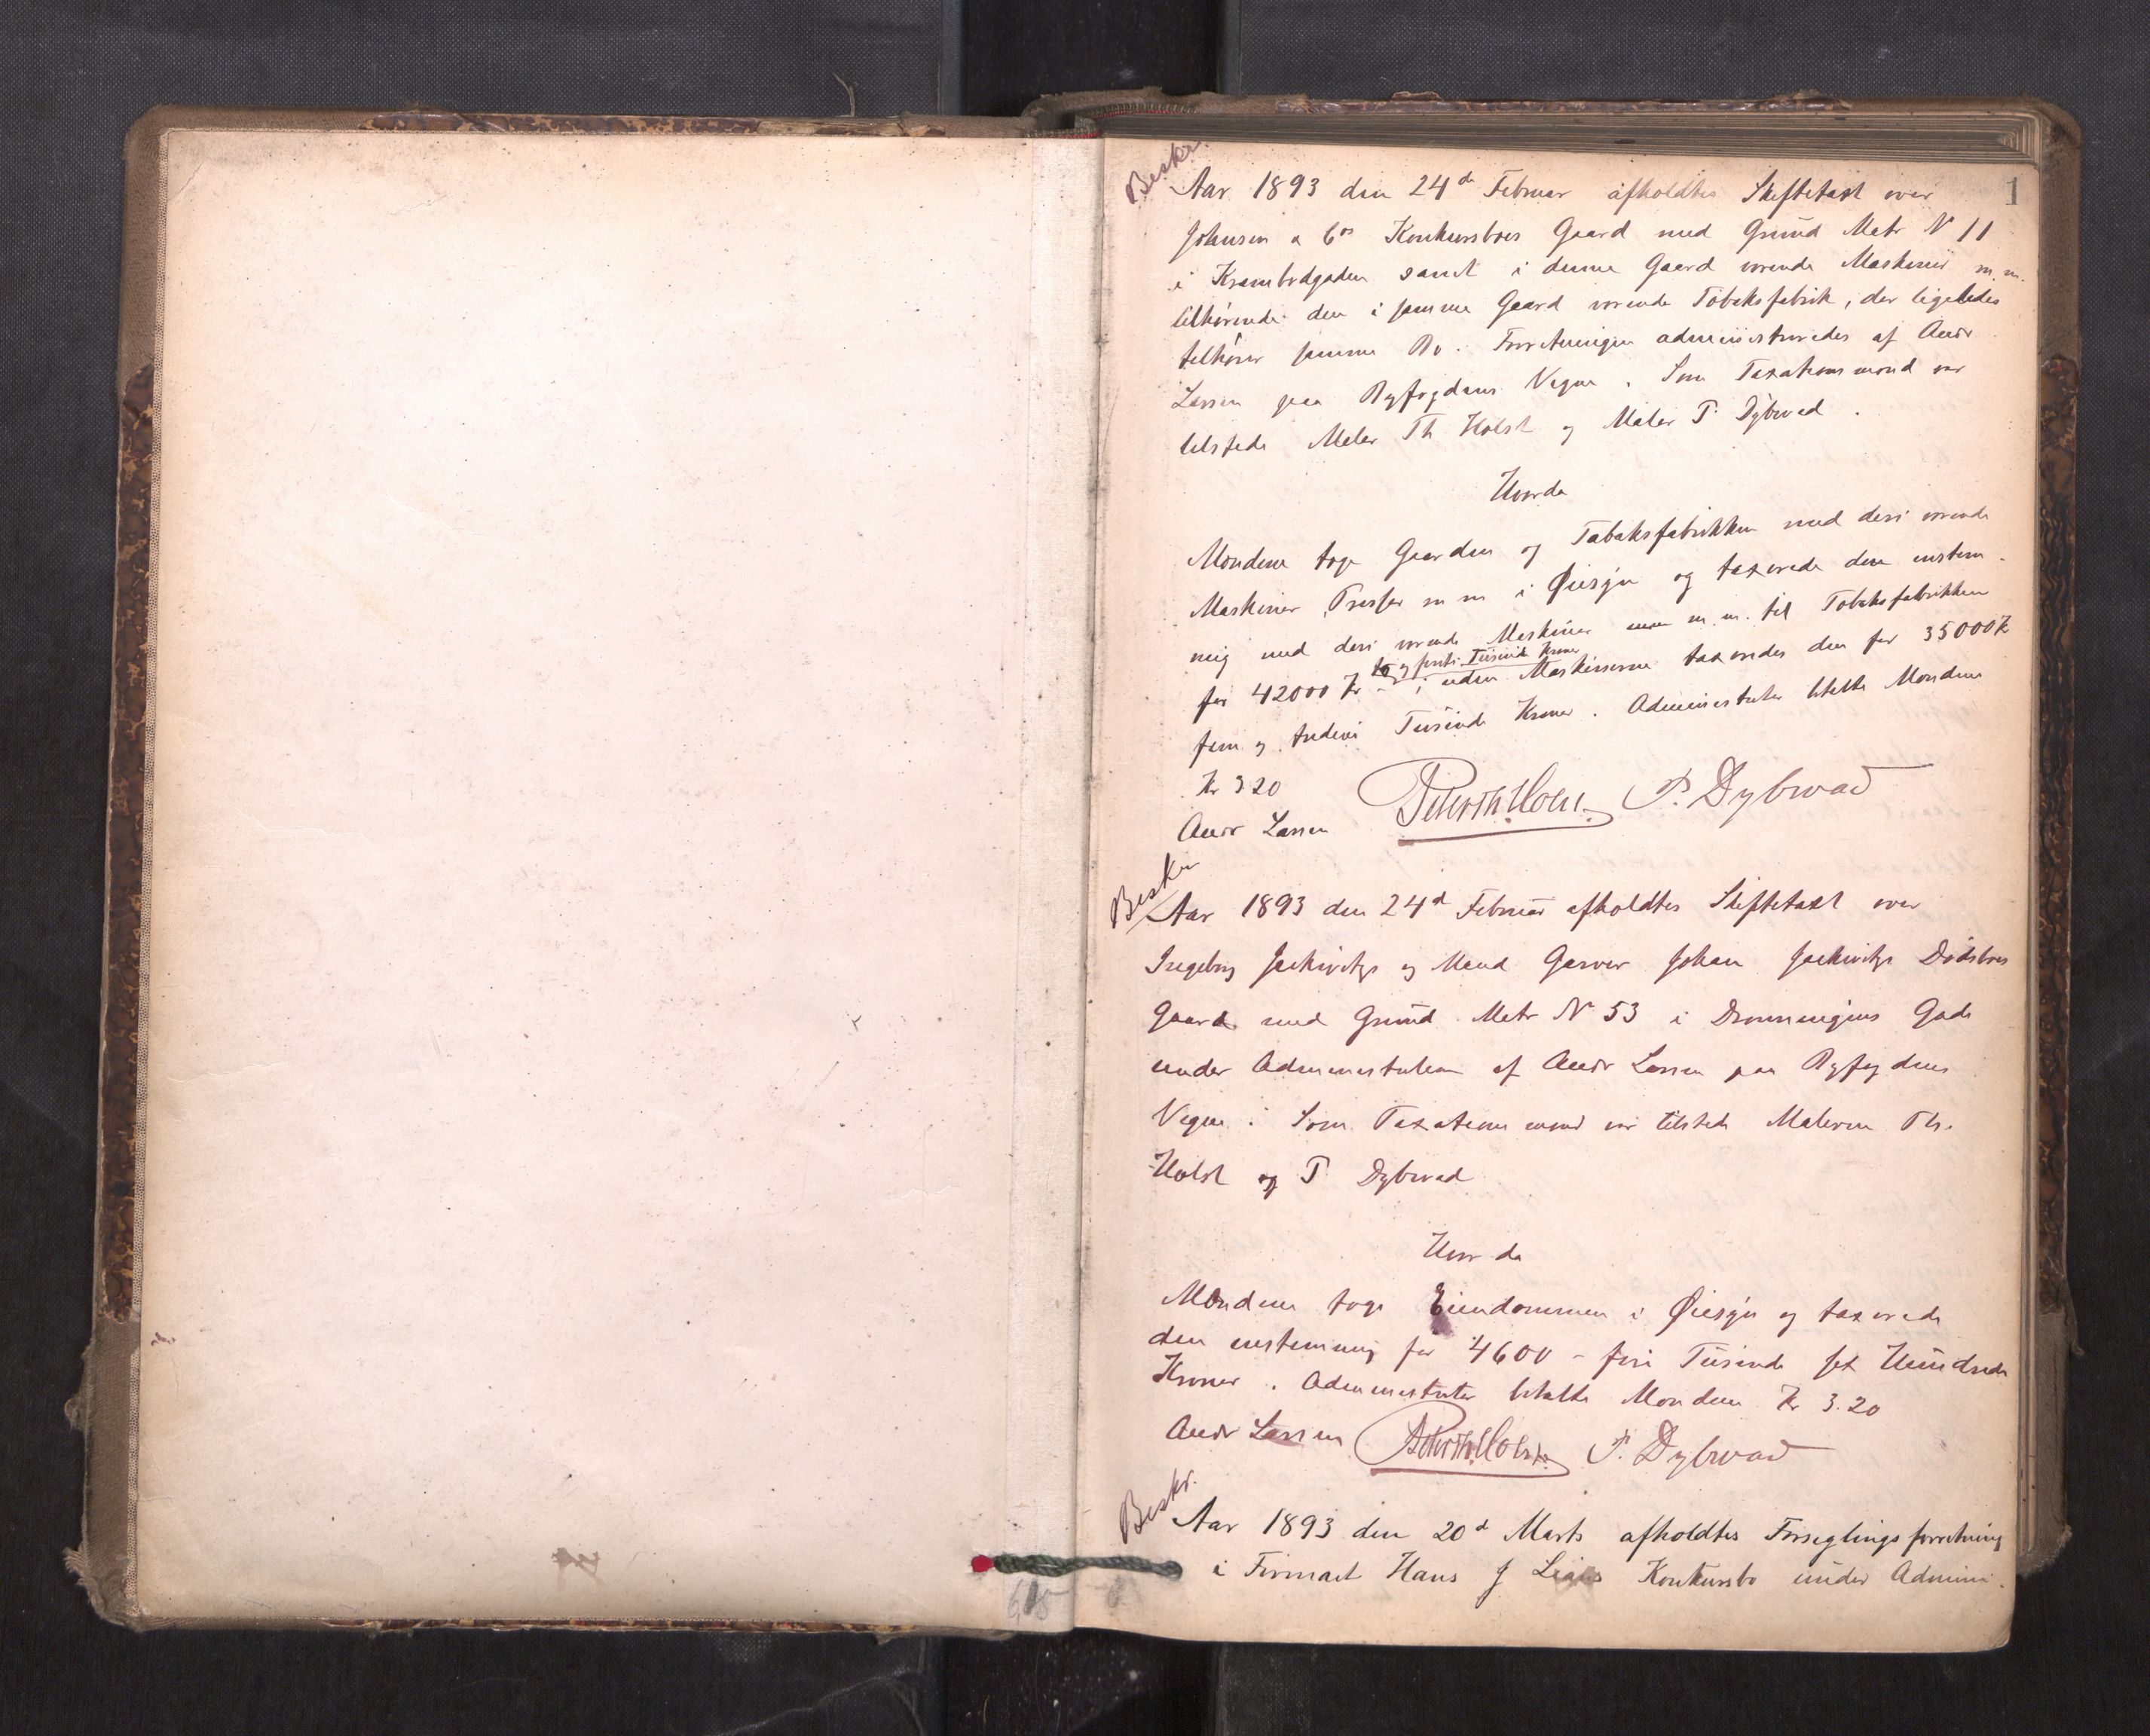 1
Beskr.
Aar 1893 den 24de Februar afholdtes Skiftetaxt over
Johnsen & Cos Konkursboes Gaard med Grund Matr N 11
i Krambodgaden samt i denne Gaard værende Maskiner m.m.
tilhørende den i samme Gaard værende Tobaksfabrik, der ligeledes
tilhører samme Bo. Forretningen administreredes af Andr
Larsen paa Byfogdens Vegne. Som Taxationsmænd var
tilstede Maler Th Holst og Maler P. Dybwad.
Hvorda
Mændene toge Gaarden og Tobaksfabrikken med deri værende
Maskiner, Presser m m i Øiesyn og taxerede den enstem-
mig med deri værende Maskiner m.m. til Tobaksfabrikken
to og firti Tusinde Kroner
for 42000 Kr - ; uden Maskinerne taxeredes den for 35000 Kr
fem og tredevi Tusinde Kroner. Administrator betalte Mændene
Kr 3 20
Andr Larsen Peter Th. Holst. P. Dybwad
Beskr
Aar 1893 den 24d Februar afholdtes Skiftetaxt over
Ingeborg og Mand Garver Johan Dødsboes
Gaard med Grund Matr N 53 i Dronningens Gade
under Administration af Andr Larsen paa Byfogdens
Vegne. Som Taxationsmænd var tilstede Malerne Th.
Holst og P Dybwad
Hvor da
Mændene toge Eiendommen i Øiesyn og taxerede
den enstemmig for 4600 - fire Tusinde sex Hundrede
Kroner. Administrator betalte Mændene Kr 3.20
Andr Larsen Peter Th. Holst. P. Dybwad
Beskr.
Aar 1893 den 20d Marts afholdtes Forseglingsforretning
i Firmaet Hans J Konkursbo under Admini-